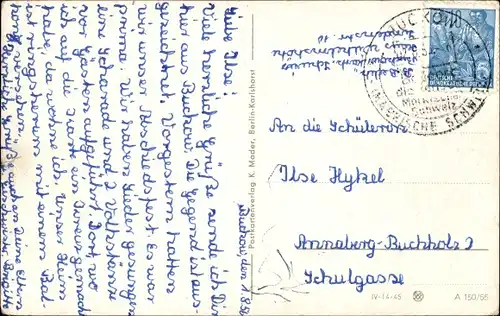 Buckow, den 1.8.56
Liebe Ilse!
Viele herzliche Grüße sende ich Dir
hier aus Buckow. Die Gegend ist aus-
gezeichnet. Vorgestern hatten
wir unser Abschiedsfest. Es war
prima. Wir haben Lieder gesungen
eine Scharade und 2 Volkstänze
vor Gästen aufgeführt. Dort wo
ich auf die Karte ein Kreuz gemacht
habe, da wohne ich. Unser Heim
ist ringsherum mit einem Bal-
Herzliche Grüße auch an Deine Eltern
Brigitte
Postkartenverlag K. Mader, Berlin-Karlshorst
BUCKOW
MÄRKISCHE SCHWEIZ
DEUTSCHE
An die Schülerin
Ilse Hykel
Annaberg-Buchholz 2
Schulgasse
IV-14-45
A 150/56